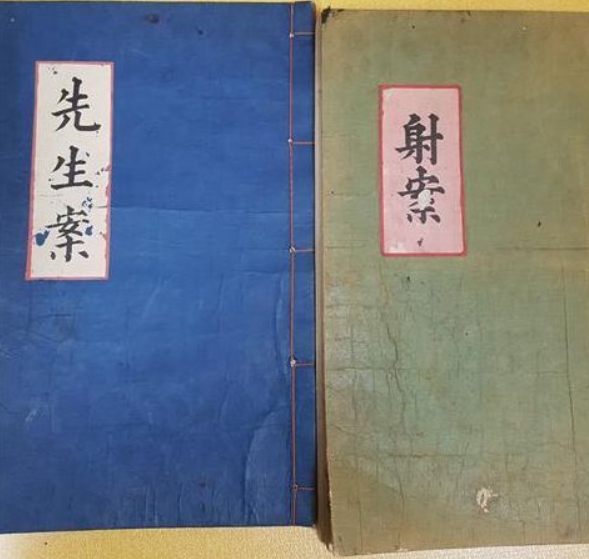 先生案
射案